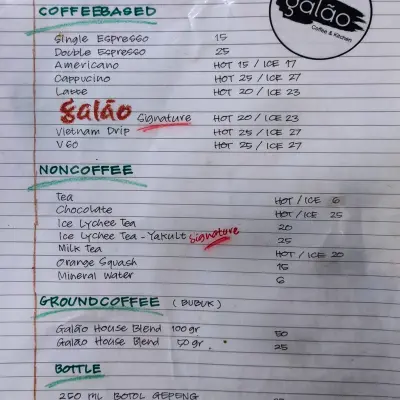 galão
Coffee & Kitchen
COFFEEBASED
Single Espresso 15
Double Espresso 25
Americano HOT 15 / ICE 17
Cappucino HOT 25 / ICE 27
Latte HOT 20 / ICE 23
Galão Signature HOT 20 / ICE 23
Vietnam Drip HOT 25 / ICE 27
V60 HOT 25 / ICE 27
NONCOFFEE
Tea HOT / ICE 6
Chocolate HOT / ICE 25
Ice Lychee Tea 20
Ice Lychee Tea - Yakult Signature 25
Milk Tea HOT / ICE 20
Orange Squash 15
Mineral Water 6
GROUNDCOFFEE (BUBUK)
Galão House Blend 100gr 50
Galão House Blend 50gr. 25
BOTTLE
250 ML BOTOL GEPENG